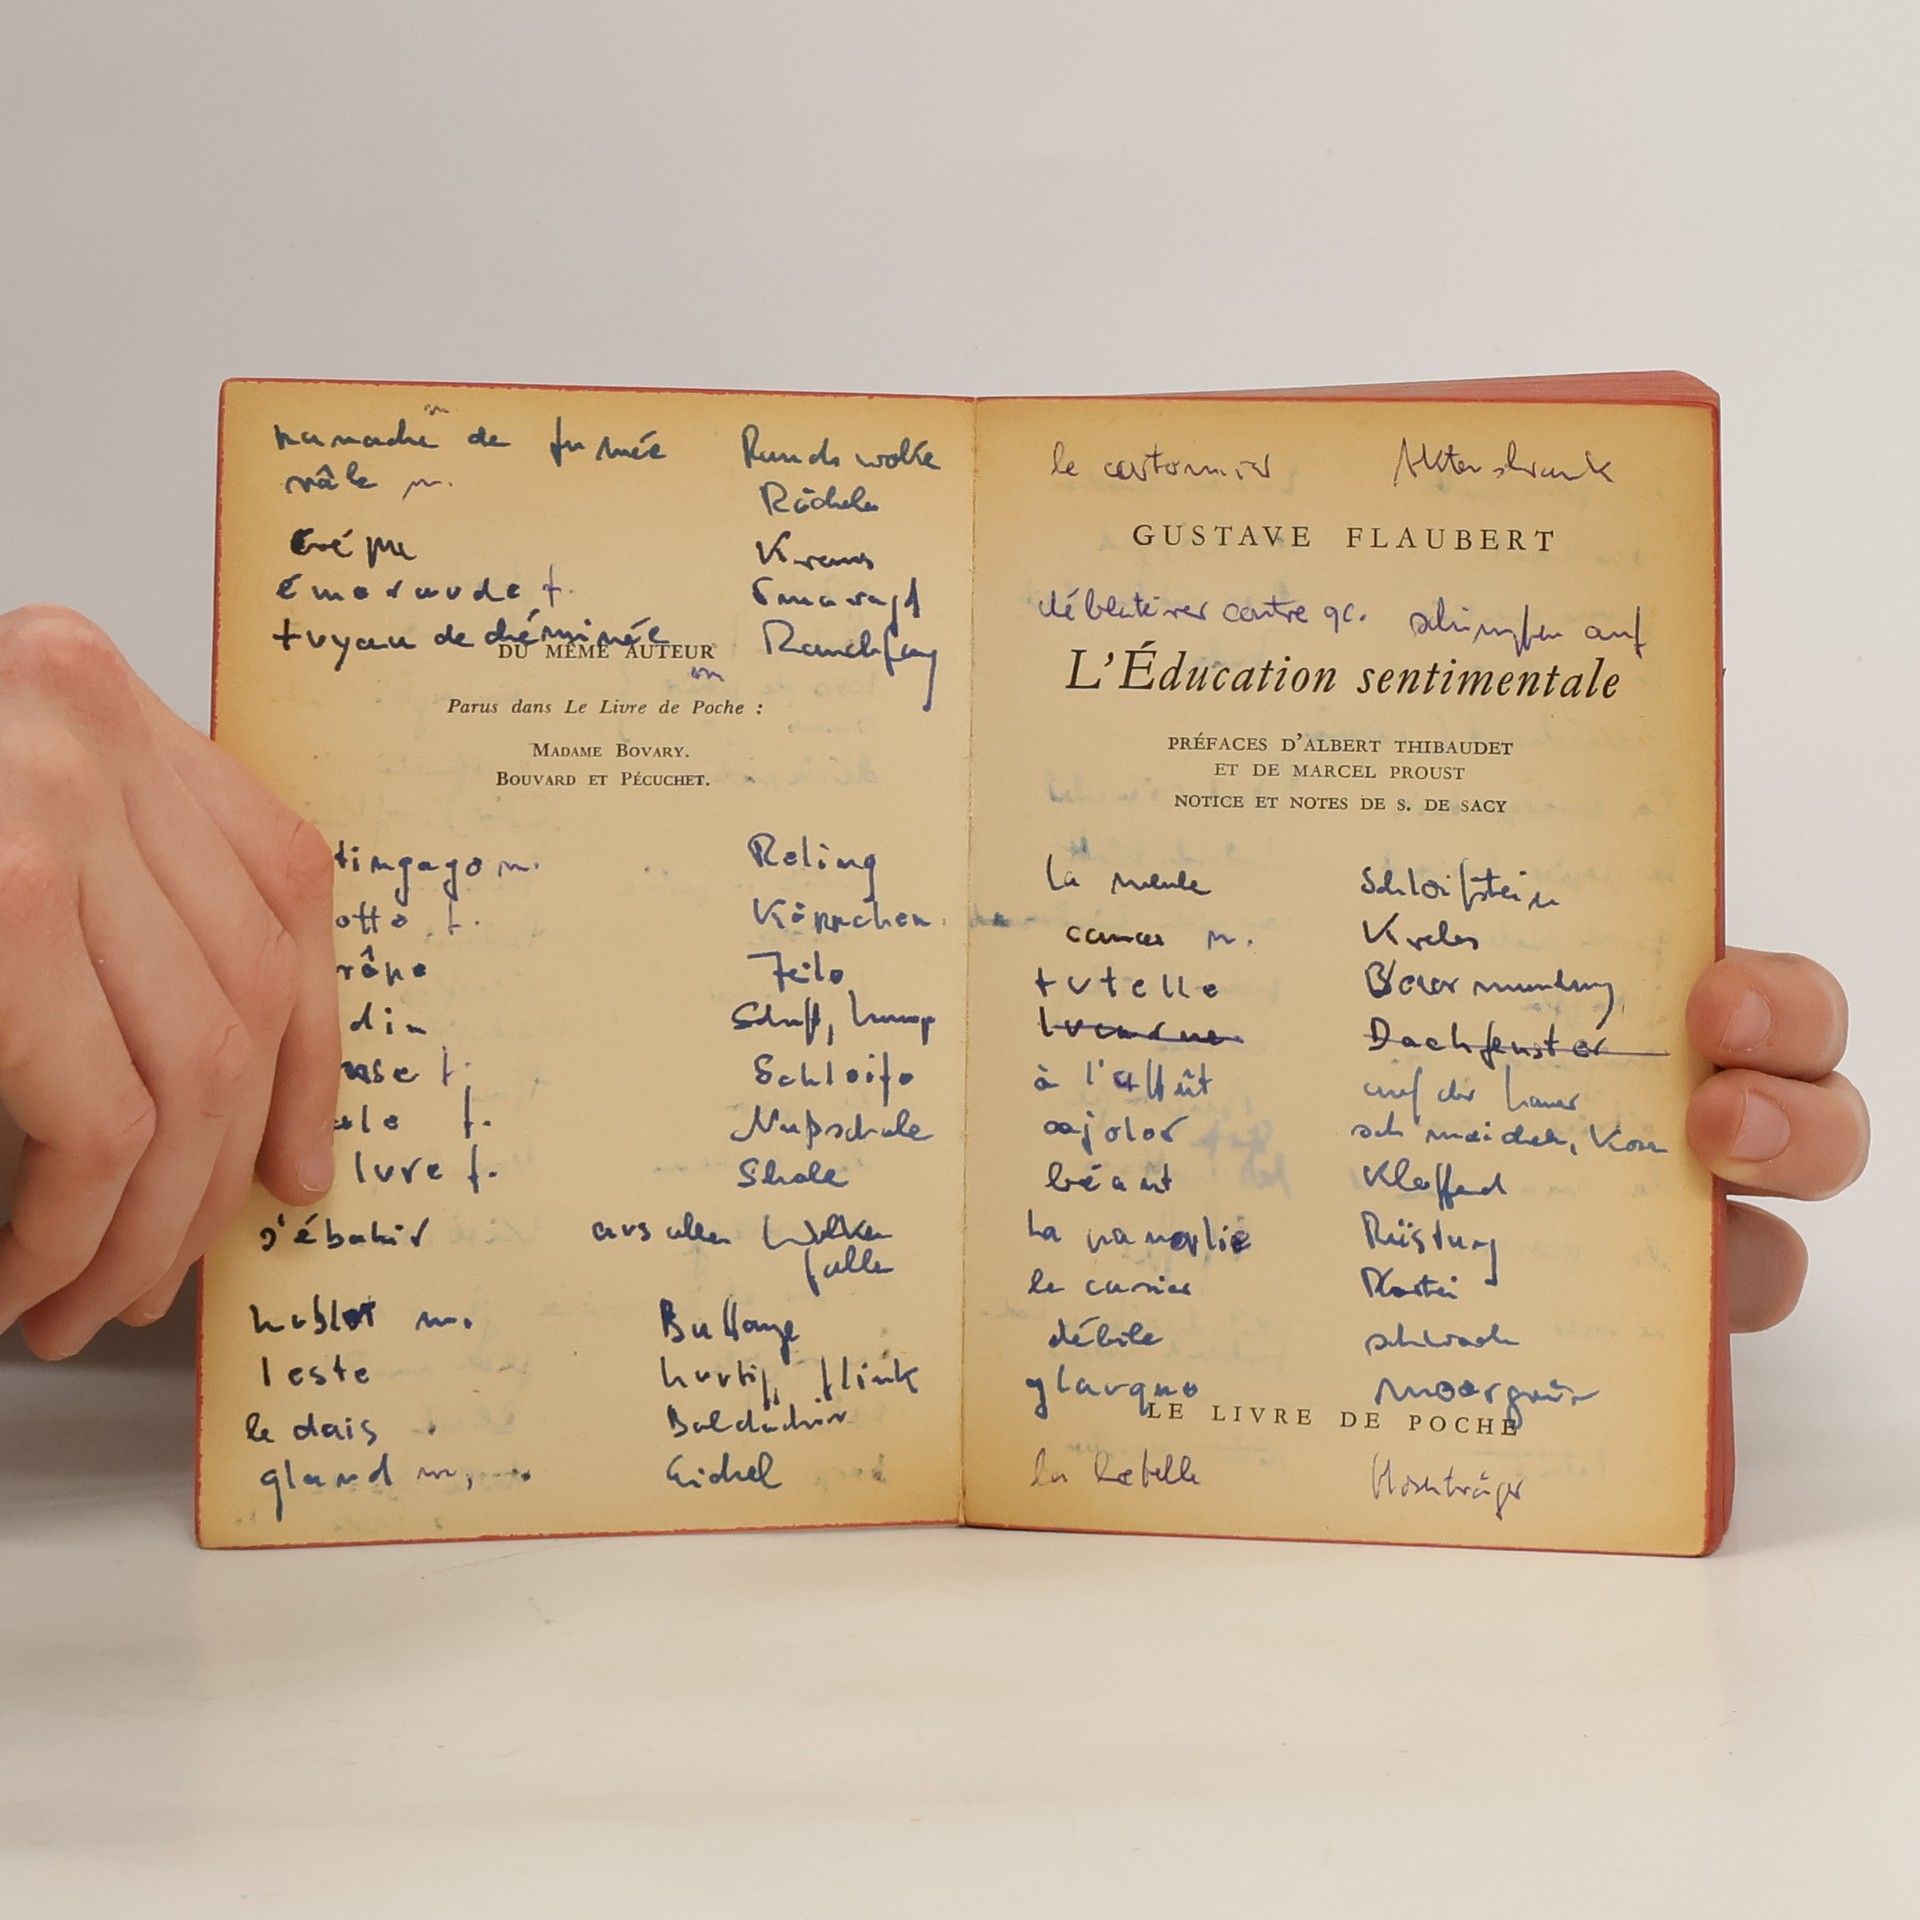 panache de fumée Rauchwolke
m
râle m. Röcheln
crêpe Kreuss
émeraude f. Smaragd
tuyau de cheminée Rauchfang
DU MÊME AUTEUR
m
Parus dans Le Livre de Poche :
MADAME BOVARY.
BOUVARD ET PÉCUCHET.
tingage m. Reling
otte f. Käppchen
râpe Feile
din Schuft, Lump
use f. Schleife
ale f. Nußschale
lure f. Schale
s'ébahir aus allen Wolken
falle
hublot m. Bullauge
leste hurtig, flink
le dais Baldachin
gland m, Eichel
le cartonnier Aktenschrank
GUSTAVE FLAUBERT
déblatérer contre qc. schimpfen auf
L'Éducation sentimentale
PRÉFACES D'ALBERT THIBAUDET
ET DE MARCEL PROUST
NOTICE ET NOTES DE S. DE SACY
la meule Schleifstein
cancer m. Krebs
tutelle Bevormundung
lucarne Dachfenster
à l'affût auf der Lauer
cajoler schmeicheln, Kosen
béant Klaffend
la panoplie Rüstung
le casier Kartei
débile schwach
glauque meergrün
LE LIVRE DE POCHE
la bretelle Hosenträger